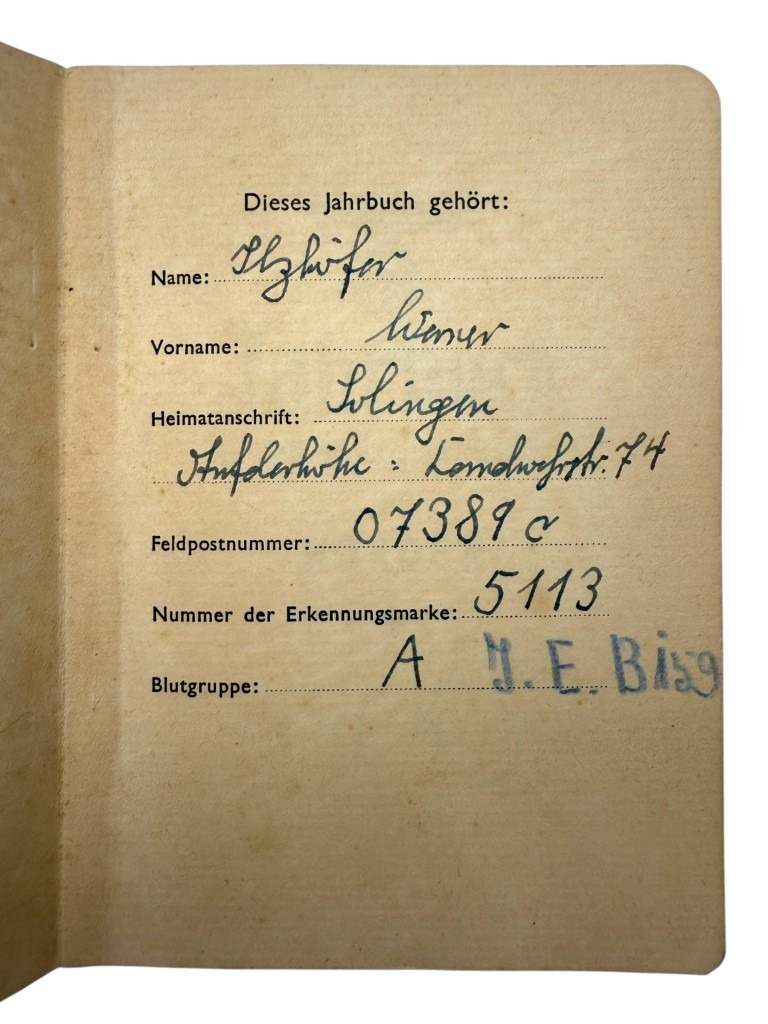 Dieses Jahrbuch gehört:
Name: Ilzhöfer
Vorname: Werner
Heimatanschrift: Solingen
Aufderhöhe: Landwehrstr. 74
Feldpostnummer: 07389 c
Nummer der Erkennungsmarke: 5113
Blutgruppe: A J. E. Bi59